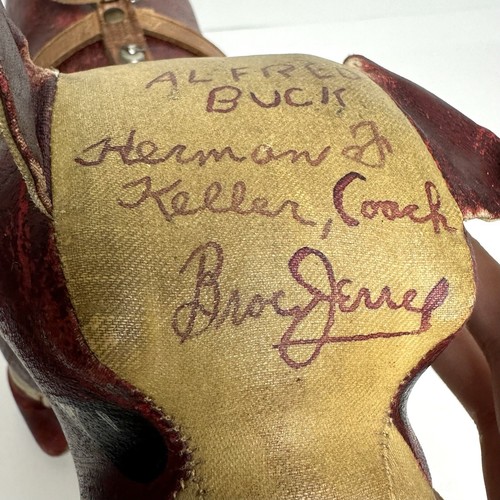 ALFRED
BUCK
Herman F
Keller, Coach
Broc Jerre